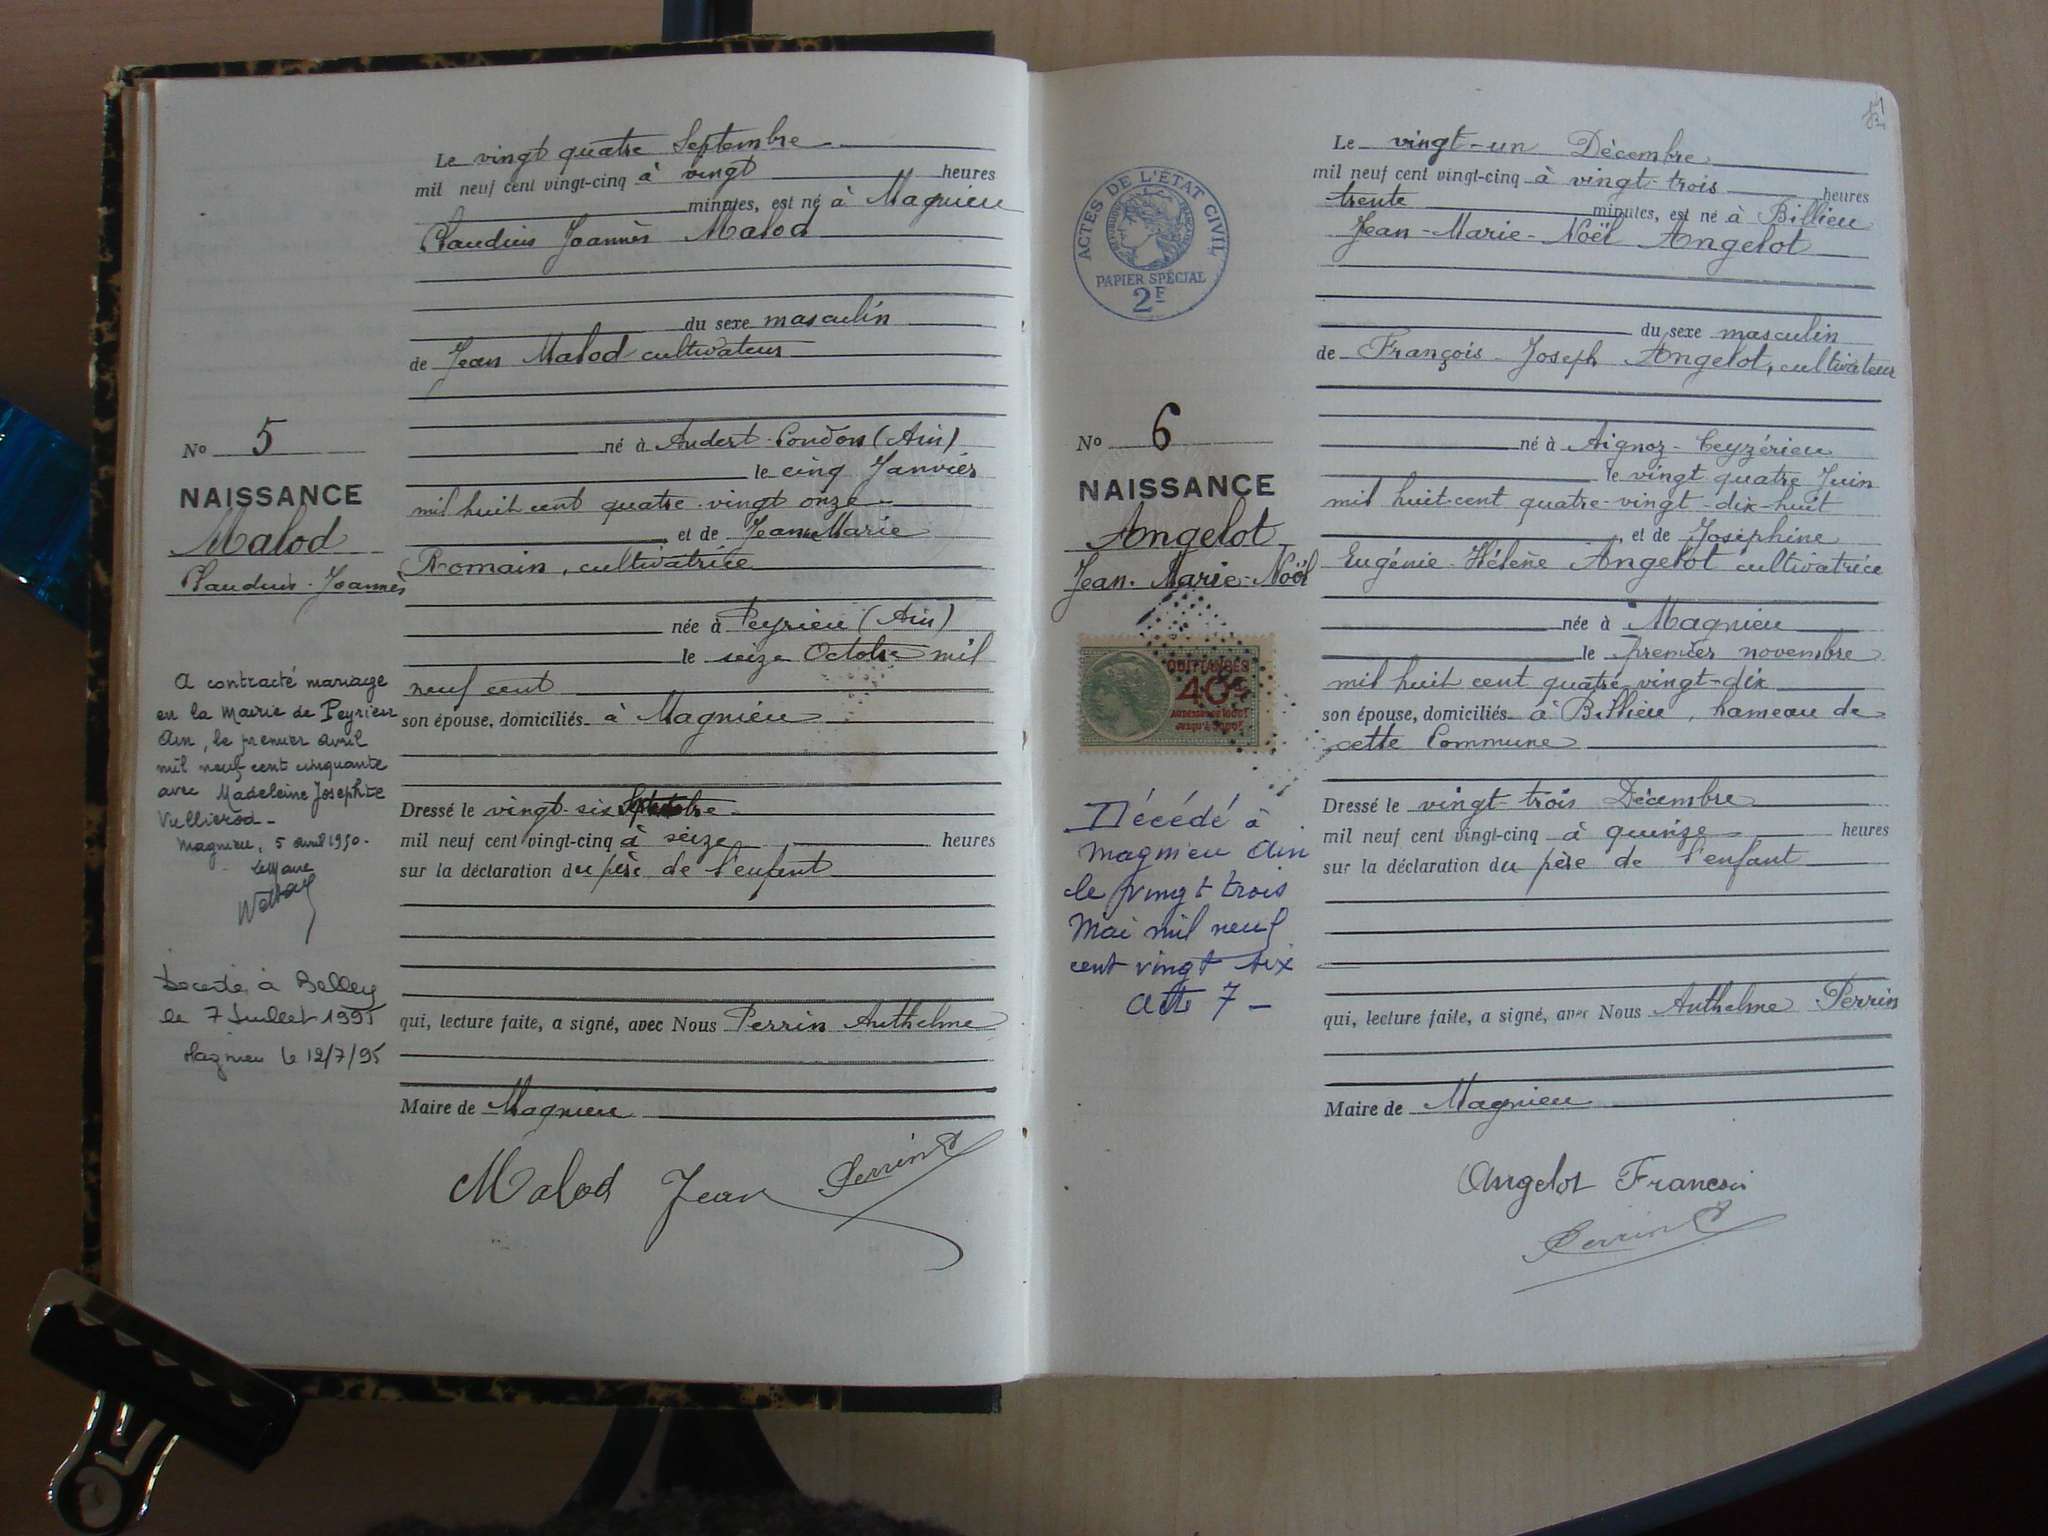 Le vingt quatre Septembre
mil neuf cent vingt-cinq à vingt heures
minutes, est né à Magnieu
Claudius Joannès Malod
du sexe masculin
de Jean Malod cultivateur
né à Andert-Condon (Ain)
le cinq Janvier
mil huit cent quatre-vingt onze
et de Jeanne Marie
Romain, cultivatrice
née à Peyrieu (Ain)
le seize Octobre mil
neuf cent
son épouse, domiciliés à Magnieu
Dressé le vingt-six
mil neuf cent vingt-cinq à seize heures
sur la déclaration du père de l'enfant
qui, lecture faite, a signé, avec Nous Perrin Anthelme
Maire de Magnieu
Malod Jean Perrin A
No 5
NAISSANCE
Malod
Claudius-Joannès
A contracté mariage
en la Mairie de Peyrieu
Ain, le premier avril
mil neuf cent cinquante
avec Madeleine Josephte
Vullierod -
Magnieu, 5 avril 1950.
Le Maire
Décédé à Belley
le 7 Juillet 1995
Magnieu le 12/7/95
Le vingt-un Décembre
mil neuf cent vingt-cinq à vingt-trois heures
trente minutes, est né à Billieu
Jean-Marie-Noël Angelot
du sexe masculin
de François-Joseph Angelot, cultivateur
né à Aignoz-Ceyzérieu
le vingt quatre Juin
mil huit-cent quatre-vingt-dix-huit
, et de Joséphine
Eugénie-Hélène Angelot cultivatrice
née à Magnieu
le premier novembre
mil huit cent quatre vingt-dix
son épouse, domiciliés à Billieu, hameau de
cette Commune
Dressé le vingt-trois Décembre
mil neuf cent vingt-cinq à quinze heures
sur la déclaration du père de l'enfant
qui, lecture faite, a signé, avec Nous Anthelme Perrin
Maire de Magnieu
Angelot Francois
Perrin A
ACTES DE L'ÉTAT CIVIL
RÉPUBLIQUE FRANÇAISE
PAPIER SPÉCIAL
2F
No 6
NAISSANCE
Angelot
Jean-Marie-Noël
QUITTANCES
40c
Décédé à
Magnieu Ain
le vingt trois
Mai mil neuf
cent vingt six
acte 7 -